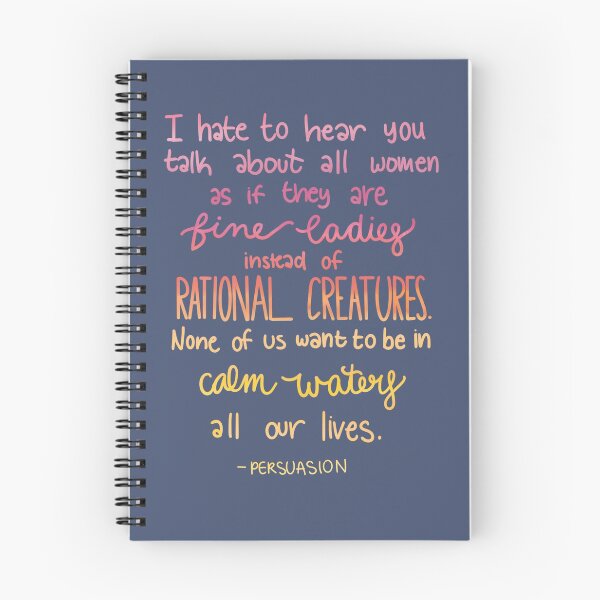 I hate to hear you
talk about all women
as if they are
fine ladies
instead of
RATIONAL CREATURES.
None of us want to be in
calm waters
all our lives.
-PERSUASION